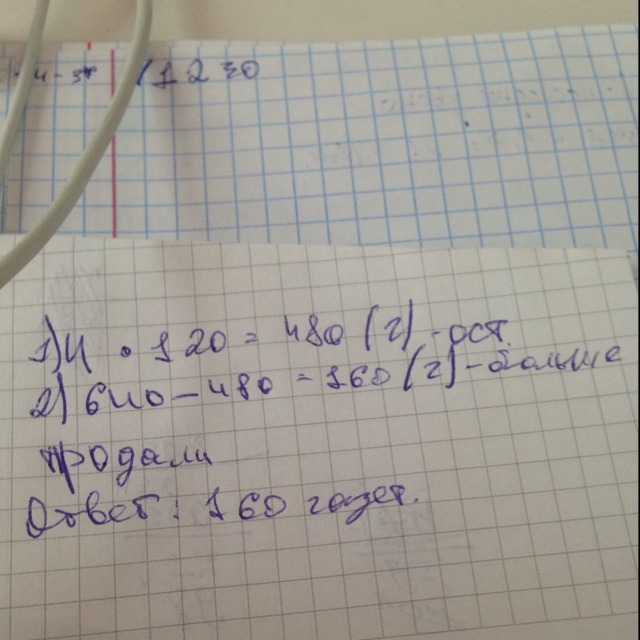 1230
1) 4 • 120 = 480 (г) - ост.
2) 640 - 480 = 160 (г) - больше
продали
Ответ: 160 газет.